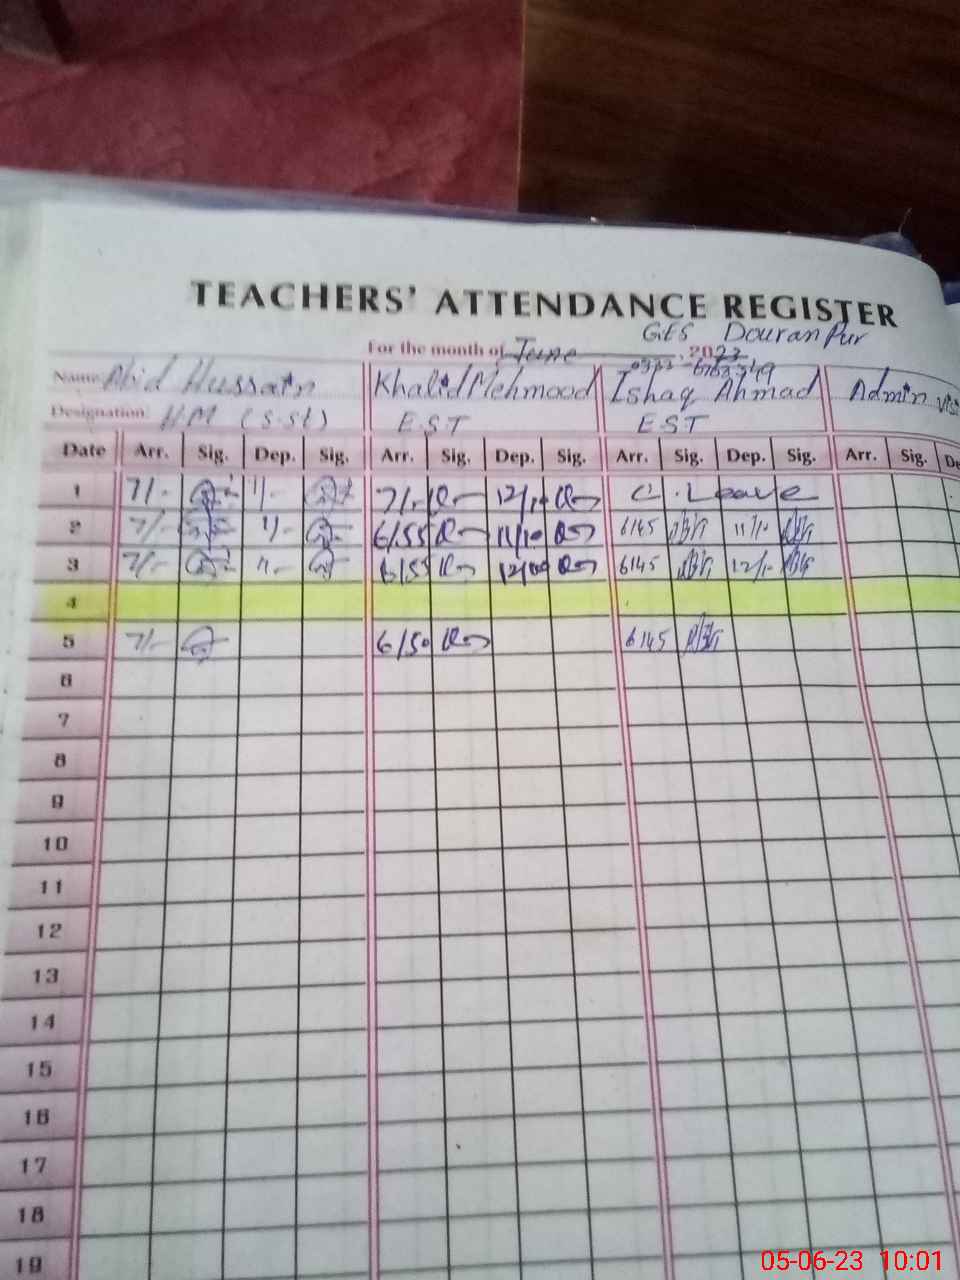 TEACHERS' ATTENDANCE REGISTER
GES Douranpur
For the month of June, 2023
Name: Abid Hussain Khalid Mehmood Ishaq Ahmad Admin
Designation: HM (S-St) EST EST
Date Arr. Sig. Dep. Sig. Arr. Sig. Dep. Sig. Arr. Sig. Dep. Sig. Arr. Sig. De
1 7/- 7/- C. Leave
2 7/- 6/55 11/10 6/45 11/10
3 7/- 6/55 12/00 6/45 12/-
4
5 7/- 6/50 6/45
6
7
8
9
10
11
12
13
14
15
16
17
18
19
05-06-23 10:01